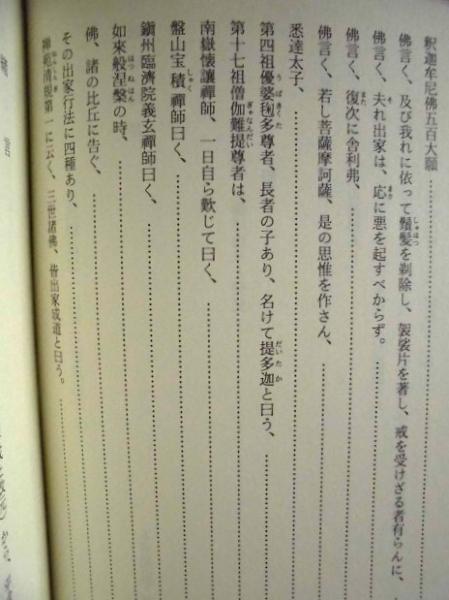 釈迦牟尼佛五百大願
佛言く、及び我れに依って鬚髪を剃除し、袈裟片を著し、戒を受けざる者有らんに、
佛言く、夫れ出家は、応に悪を起すべからず。
佛言く、復次に舎利弗、
佛言く、若し菩薩摩訶薩、是の思惟を作さん、
悉達太子、
第四祖優婆毱多尊者、長者の子あり、名けて提多迦と曰う、
第十七祖僧伽難提尊者は、
南嶽懐讓禪師、一日自ら歎じて曰く、
盤山宝積禪師曰く、
鎭州臨濟院義玄禪師曰く、
如來般涅槃の時、
佛、諸の比丘に告ぐ、
その出家行法に四種あり、
禅苑清規第一に云く、三世諸佛、皆出家成道と曰う。